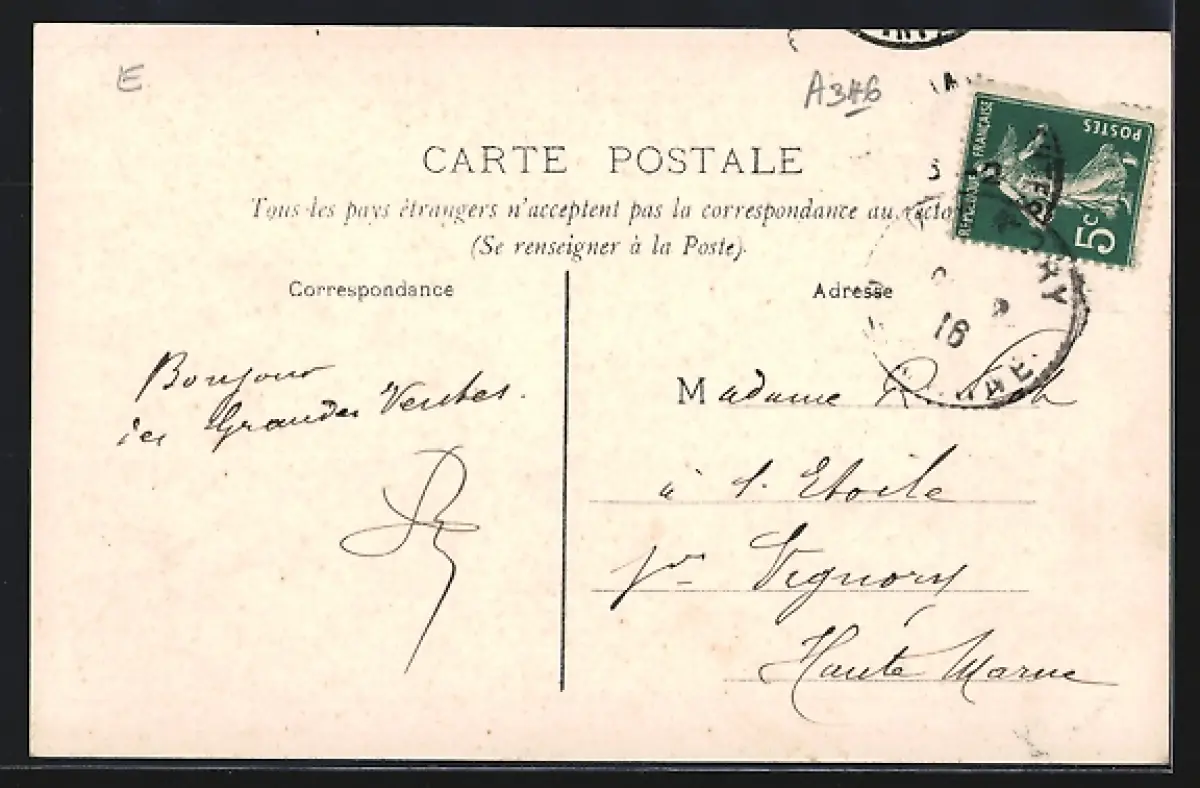 E
A346
CARTE POSTALE
Tous les pays étrangers n'acceptent pas la correspondance au recto
(Se renseigner à la Poste)
Correspondance
Adresse
REPUBLIQUE FRANÇAISE
POSTES
5c
16
Bonjour
des Grandes Ventes.
Madame
à l'Etoile
pr Vignory
Haute Marne